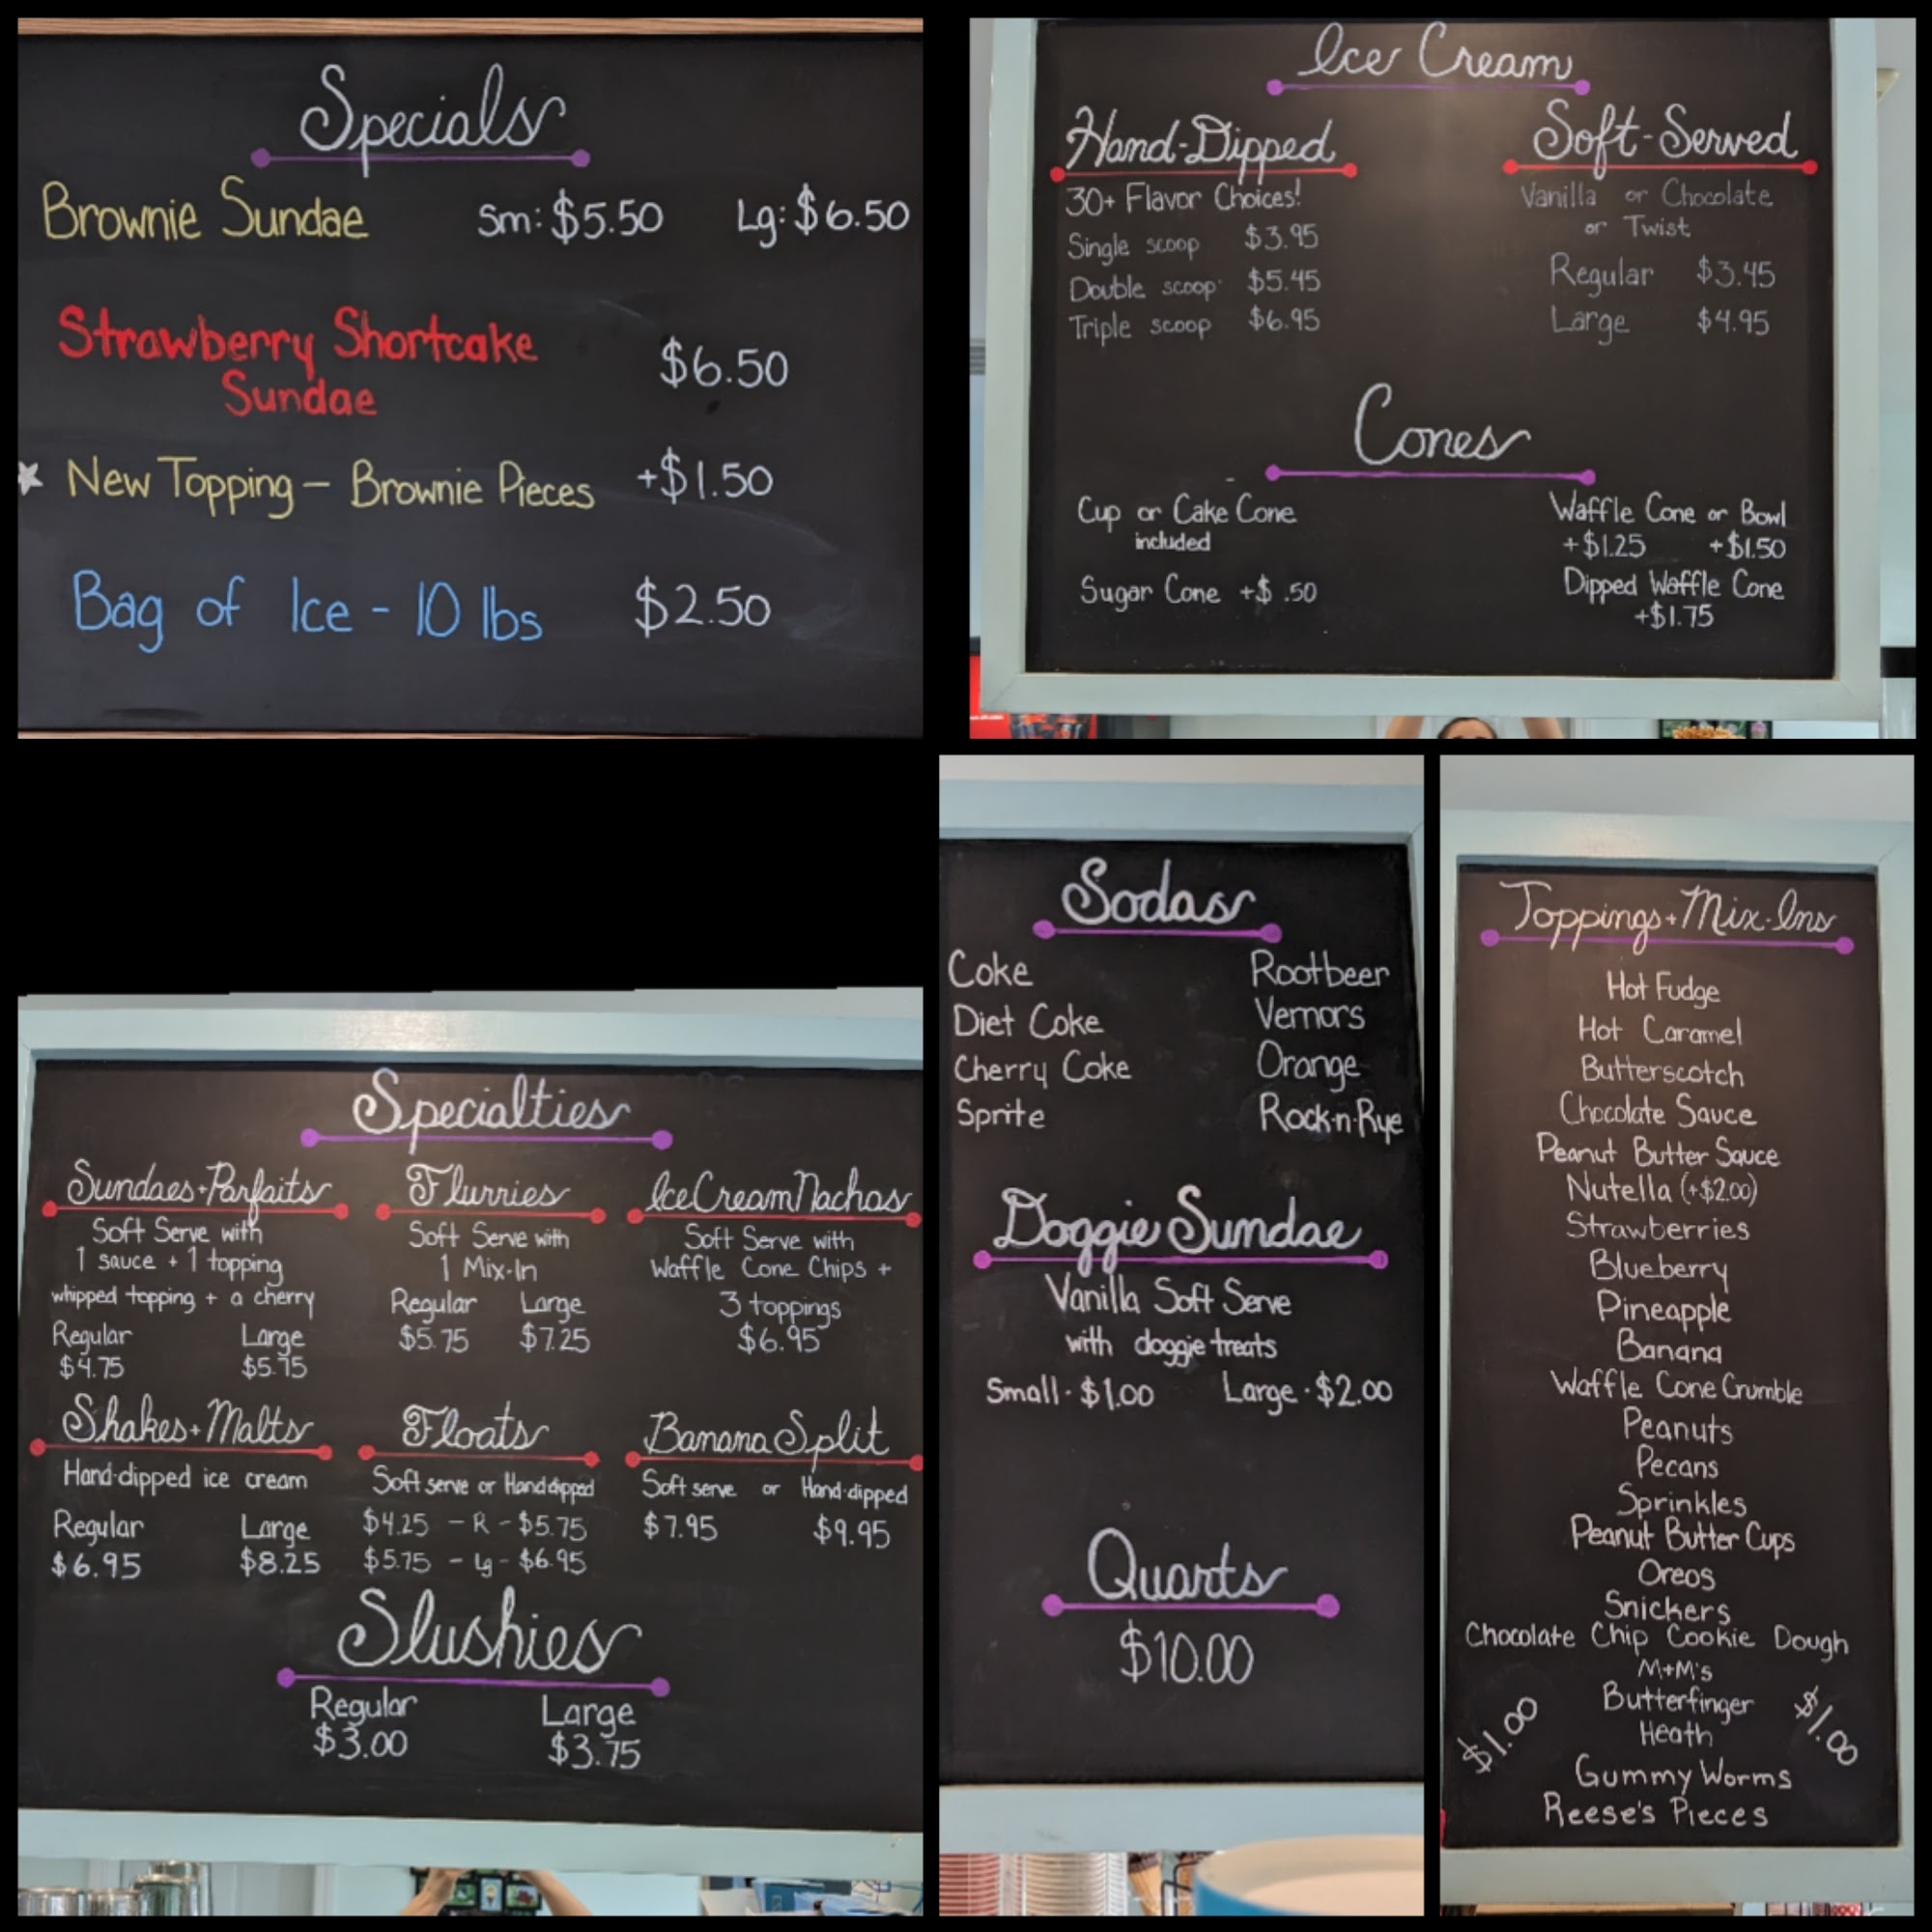 Specials
Brownie Sundae Sm: $5.50 Lg: $6.50
Strawberry Shortcake
Sundae
$6.50
New Topping - Brownie Pieces +$1.50
Bag of Ice - 10 lbs $2.50
Ice Cream
Hand-Dipped
30+ Flavor Choices!
Single scoop $3.95
Double scoop $5.45
Triple scoop $6.95
Soft-Served
Vanilla or Chocolate
or Twist
Regular $3.45
Large $4.95
Cones
Cup or Cake Cone
included
Sugar Cone +$ .50
Waffle Cone or Bowl
+$1.25 +$1.50
Dipped Waffle Cone
+$1.75
Specialties
Sundaes+Parfaits
Soft Serve with
1 sauce + 1 topping
whipped topping + a cherry
Regular Large
$4.75 $5.75
Flurries
Soft Serve with
1 Mix-In
Regular Large
$5.75 $7.25
Ice Cream Nachos
Soft Serve with
Waffle Cone Chips +
3 toppings
$6.95
Shakes+Malts
Hand-dipped ice cream
Regular Large
$6.95 $8.25
Floats
Soft serve or Hand dipped
$4.25 - R - $5.75
$5.75 - Lg - $6.95
Banana Split
Soft serve or Hand-dipped
$7.95 $9.95
Slushies
Regular Large
$3.00 $3.75
Sodas
Coke Rootbeer
Diet Coke Vernors
Cherry Coke Orange
Sprite Rock-n-Rye
Doggie Sundae
Vanilla Soft Serve
with doggie treats
Small - $1.00 Large - $2.00
Quarts
$10.00
Toppings+Mix-Ins
Hot Fudge
Hot Caramel
Butterscotch
Chocolate Sauce
Peanut Butter Sauce
Nutella (+$2.00)
Strawberries
Blueberry
Pineapple
Banana
Waffle Cone Crumble
Peanuts
Pecans
Sprinkles
Peanut Butter Cups
Oreos
Snickers
Chocolate Chip Cookie Dough
M+M's
Butterfinger
Heath
$1.00 $1.00
Gummy Worms
Reese's Pieces